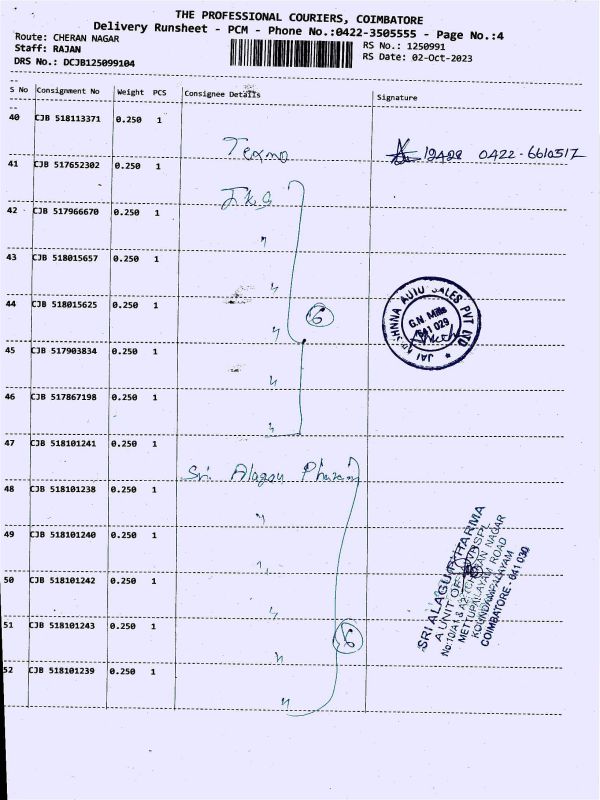 THE PROFESSIONAL COURIERS, COIMBATORE
Delivery Runsheet - PCM - Phone No.:0422-3505555 - Page No.:4
Route: CHERAN NAGAR
RS No.: 1250991
Staff: RAJAN
RS Date: 02-Oct-2023
DRS No.: DCJB125099104
S No Consignment No Weight PCS Consignee Details Signature
40 CJB 518113371 0.250 1
Texmo 0422-6610517
41 CJB 517652302 0.250 1
42 CJB 517966670 0.250 1
"
43 CJB 518015657 0.250 1
"
44 CJB 518015625 0.250 1
6
"
45 CJB 517903834 0.250 1
"
46 CJB 517867198 0.250 1
"
AUTO SALES PVT LTD
JAI
G.N. Mills
641 029
47 CJB 518101241 0.250 1
Sri Alagou
48 CJB 518101238 0.250 1
"
49 CJB 518101240 0.250 1
"
50 CJB 518101242 0.250 1
"
51 CJB 518101243 0.250 1
6
"
52 CJB 518101239 0.250 1
"
SRI ALAGU PHARMA
A UNIT OF
NAGAR
METTUPALAYAM ROAD
KOUNDAMPALAYAM
COIMBATORE - 641 030